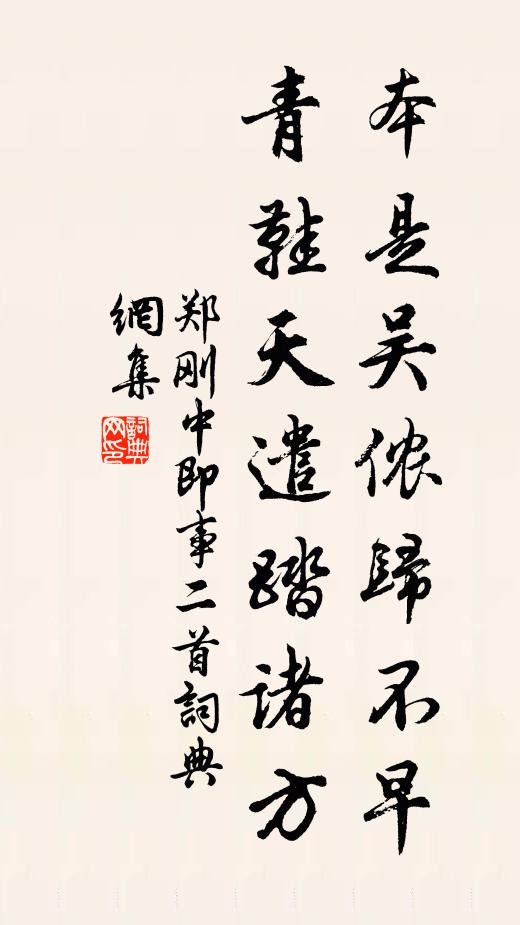 本是吴侬歸不早
青鞋天遣踏諸方
郑刚中即事二首詞典
網集
詞典
网印